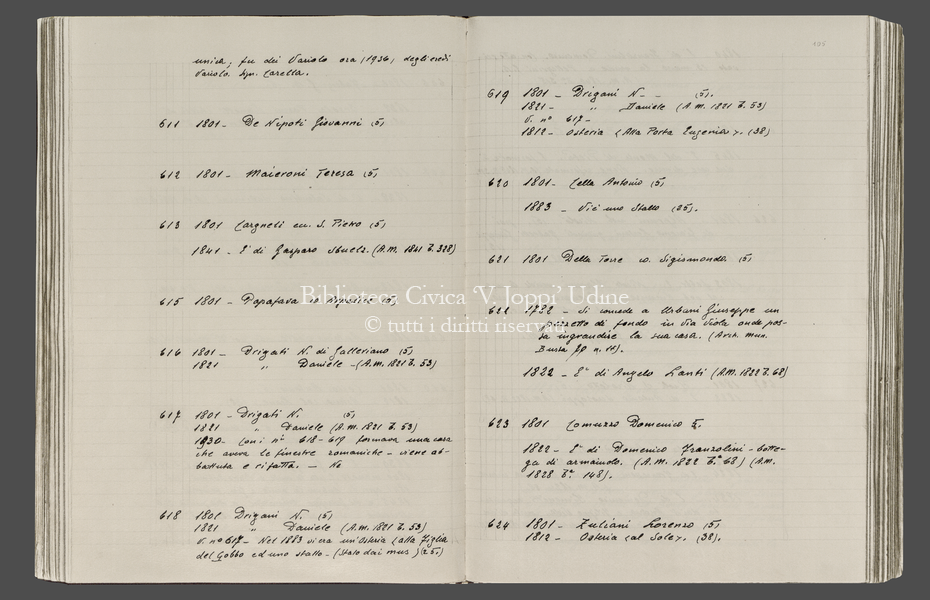 unica; fu dei Variolo ora (1936) degli eredi
Variolo. Syn. Carella.
611 1801 - De Nipoti Giovanni (5)
612 1801 - Maieroni Teresa (5)
613 1801 Cargneli en. S. Pietro (5)
1841 - E' di Gasparo (A.M. 1841 b. 328)
615 1801 - Papafava co. (5)
616 1801 - Drigati N. di Galleriano (5)
1821 " Daniele - (A.M. 1821 b. 53)
617 1801 - Drigati N. (5)
1821 " Daniele (A.M. 1821 b. 53)
1930 - Con i nⁱ 618-619 formava una casa
che aveva le finestre romaniche - viene ab-
battuta e rifatta. - No
618 1801 Drigani N. (5)
1821 " Daniele (A.M. 1821 b. 53)
V. nº 617 - Nel 1883 vi era un'Osteria (alla Figlia
del Gobbo ed uno stallo - (Stalo dai mus) (25.)
195
619 1801 - Drigani N - - (5).
1821 - " Daniele (A.M. 1821 b. 53)
V. nº 617 -
1812 - Osteria <Alla Porta Eugenia>. (38)
620 1801 - Cella Antonio (5)
1883 - Vi è uno Stallo (25).
621 1801 Della Torre co. Sigismondo. (5)
622 1722 - Si concede a Urbani Giuseppe un
pezzetto di fondo in Via Viola onde pos-
sa ingrandire la sua casa. (Arch. mun.
Busta
1822 - E' di Angelo Lanti (A.M. 1822 b. 68)
623 1801 Comuzzo Domenico 5.
1822 - E' di Domenico Franzolini - botte-
ga di armaiuolo. (A.M. 1822 b.ª 68) (A.M.
1828 b.ª 148).
624 1801 - Zuliani Lorenzo (5)
1812 - Osteria <al Sole>. (38).
Biblioteca Civica 'V. Joppi' Udine
© tutti i diritti riservati